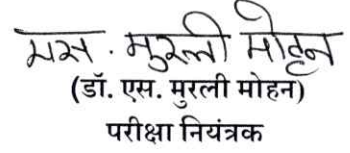 एस. मुरली मोहन
(डॉ. एस. मुरली मोहन)
परीक्षा नियंत्रक